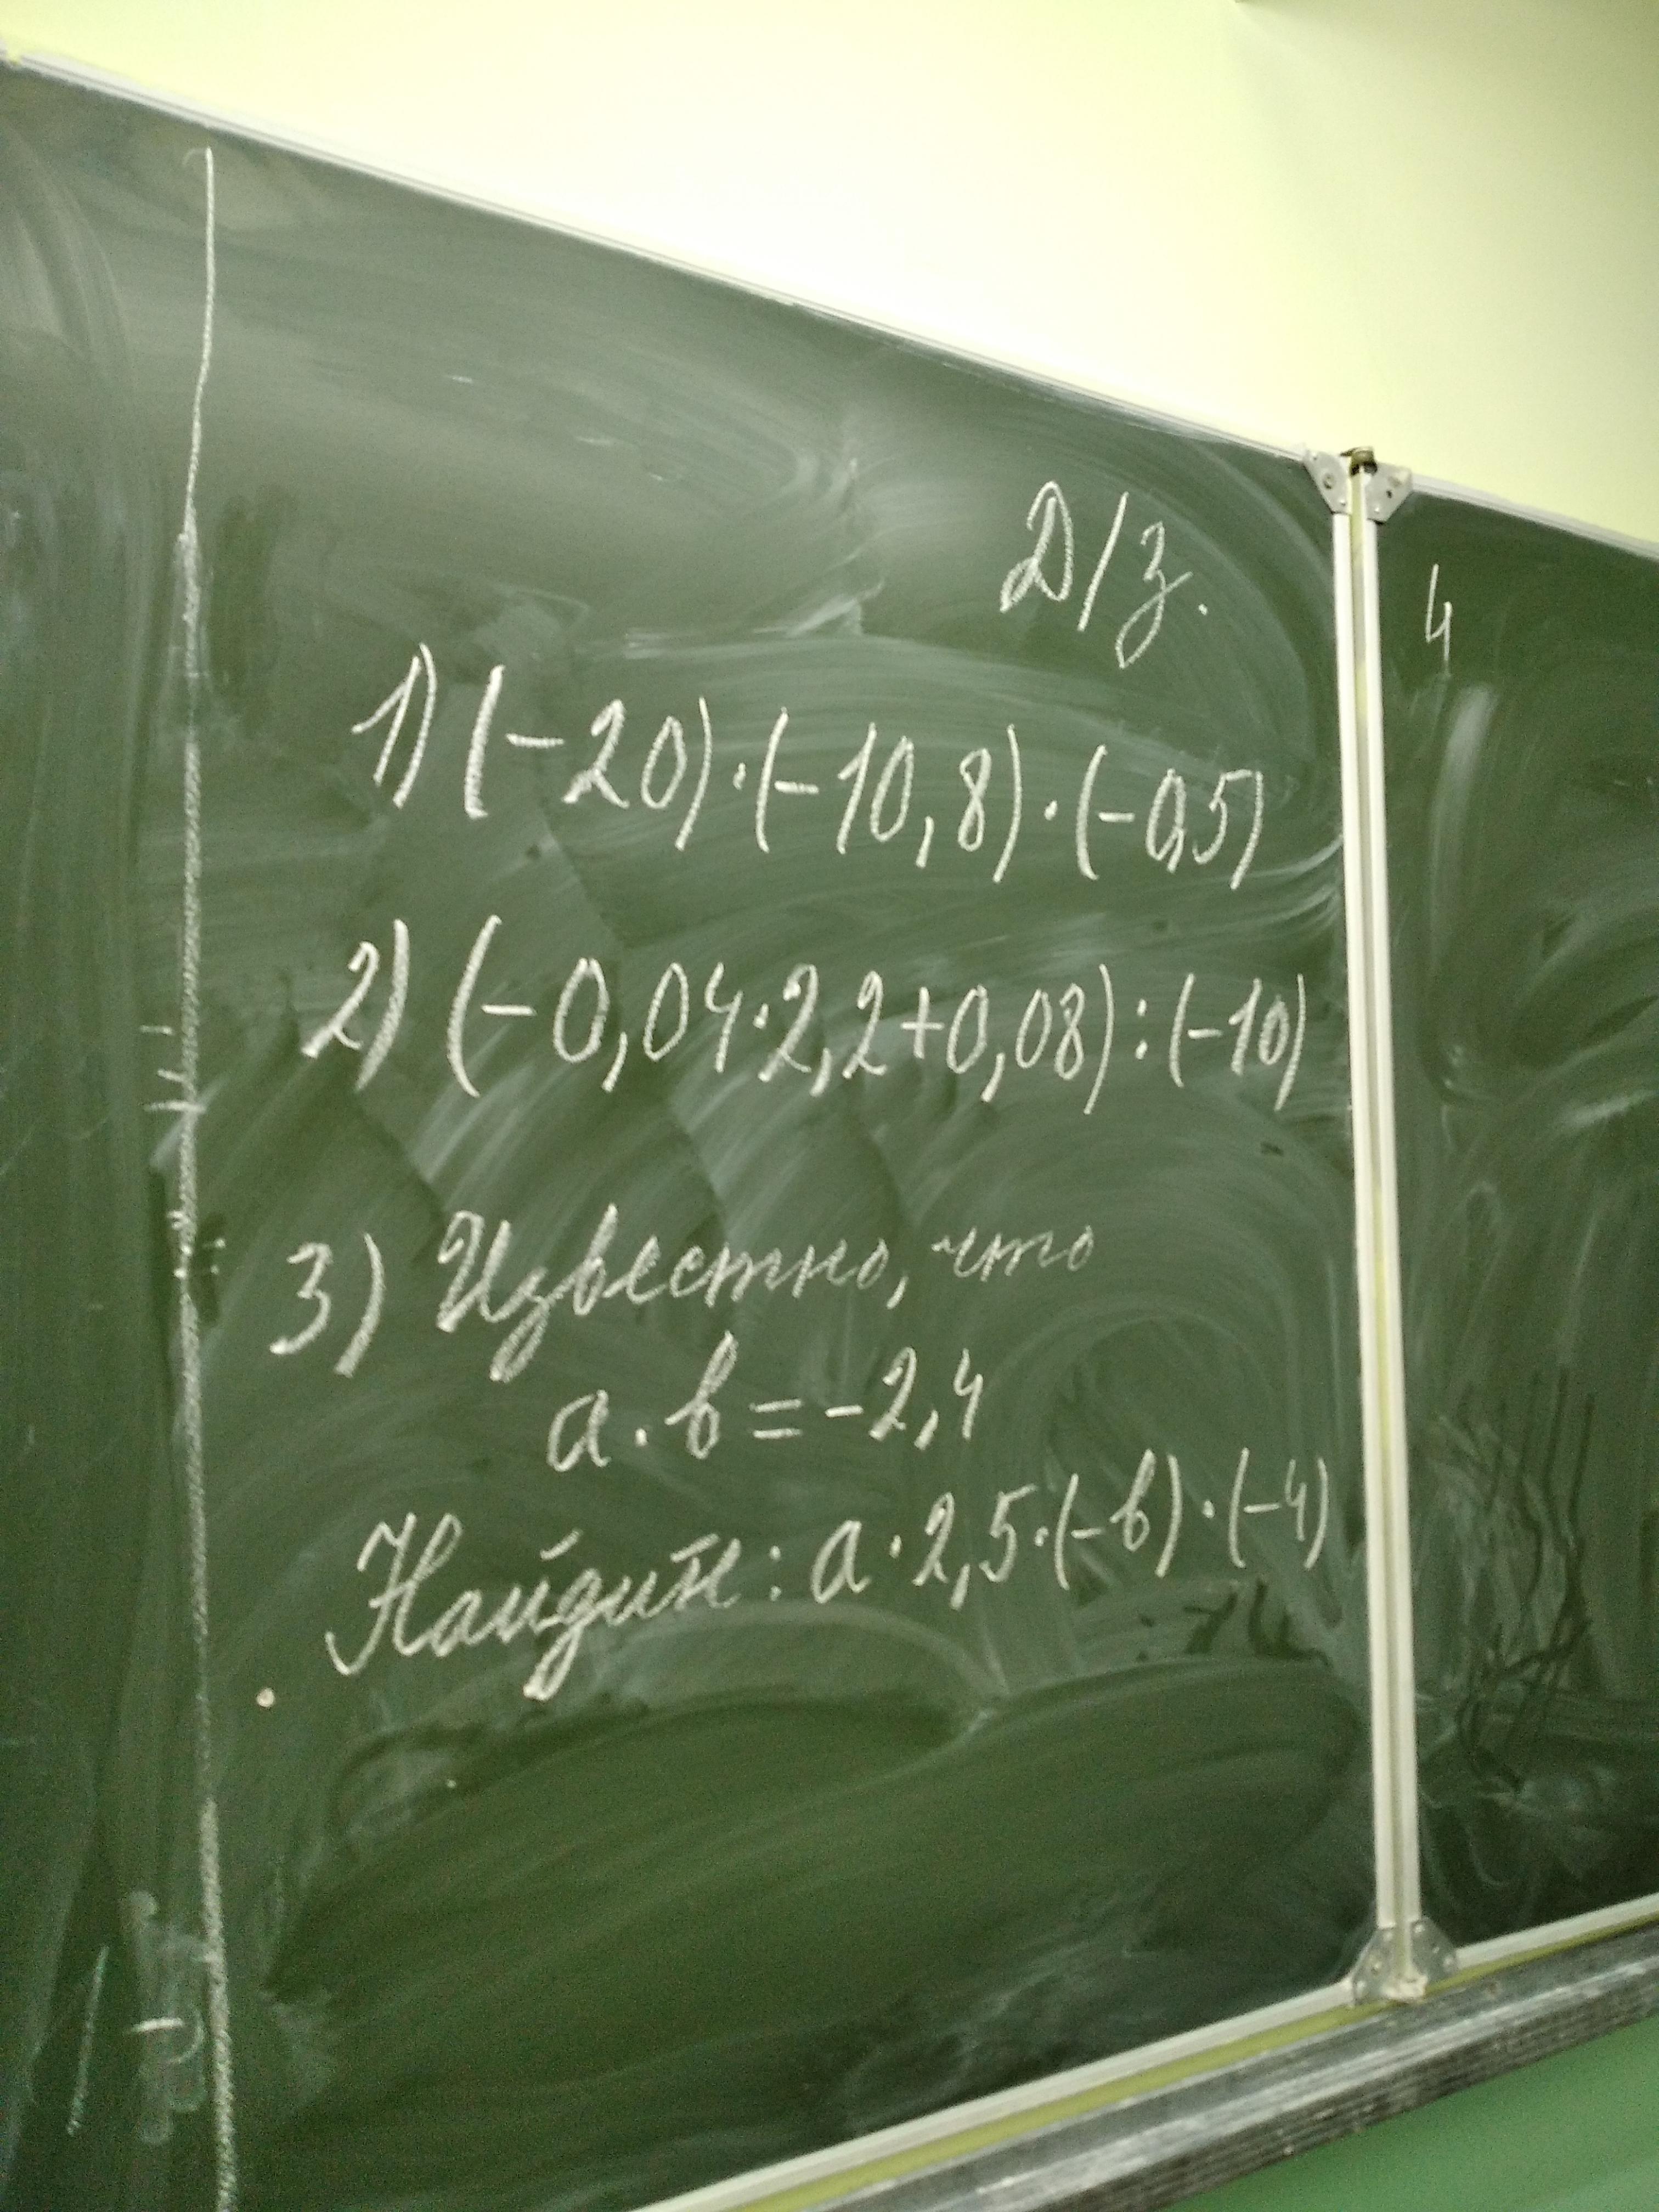 Д/з.
1) (-20)·(-10,8)·(-0,5)
2) (-0,04·2,2+0,08):(-10)
3) Известно, что
a·b=-2,4
Найдите: a·2,5·(-b)·(-4)
4